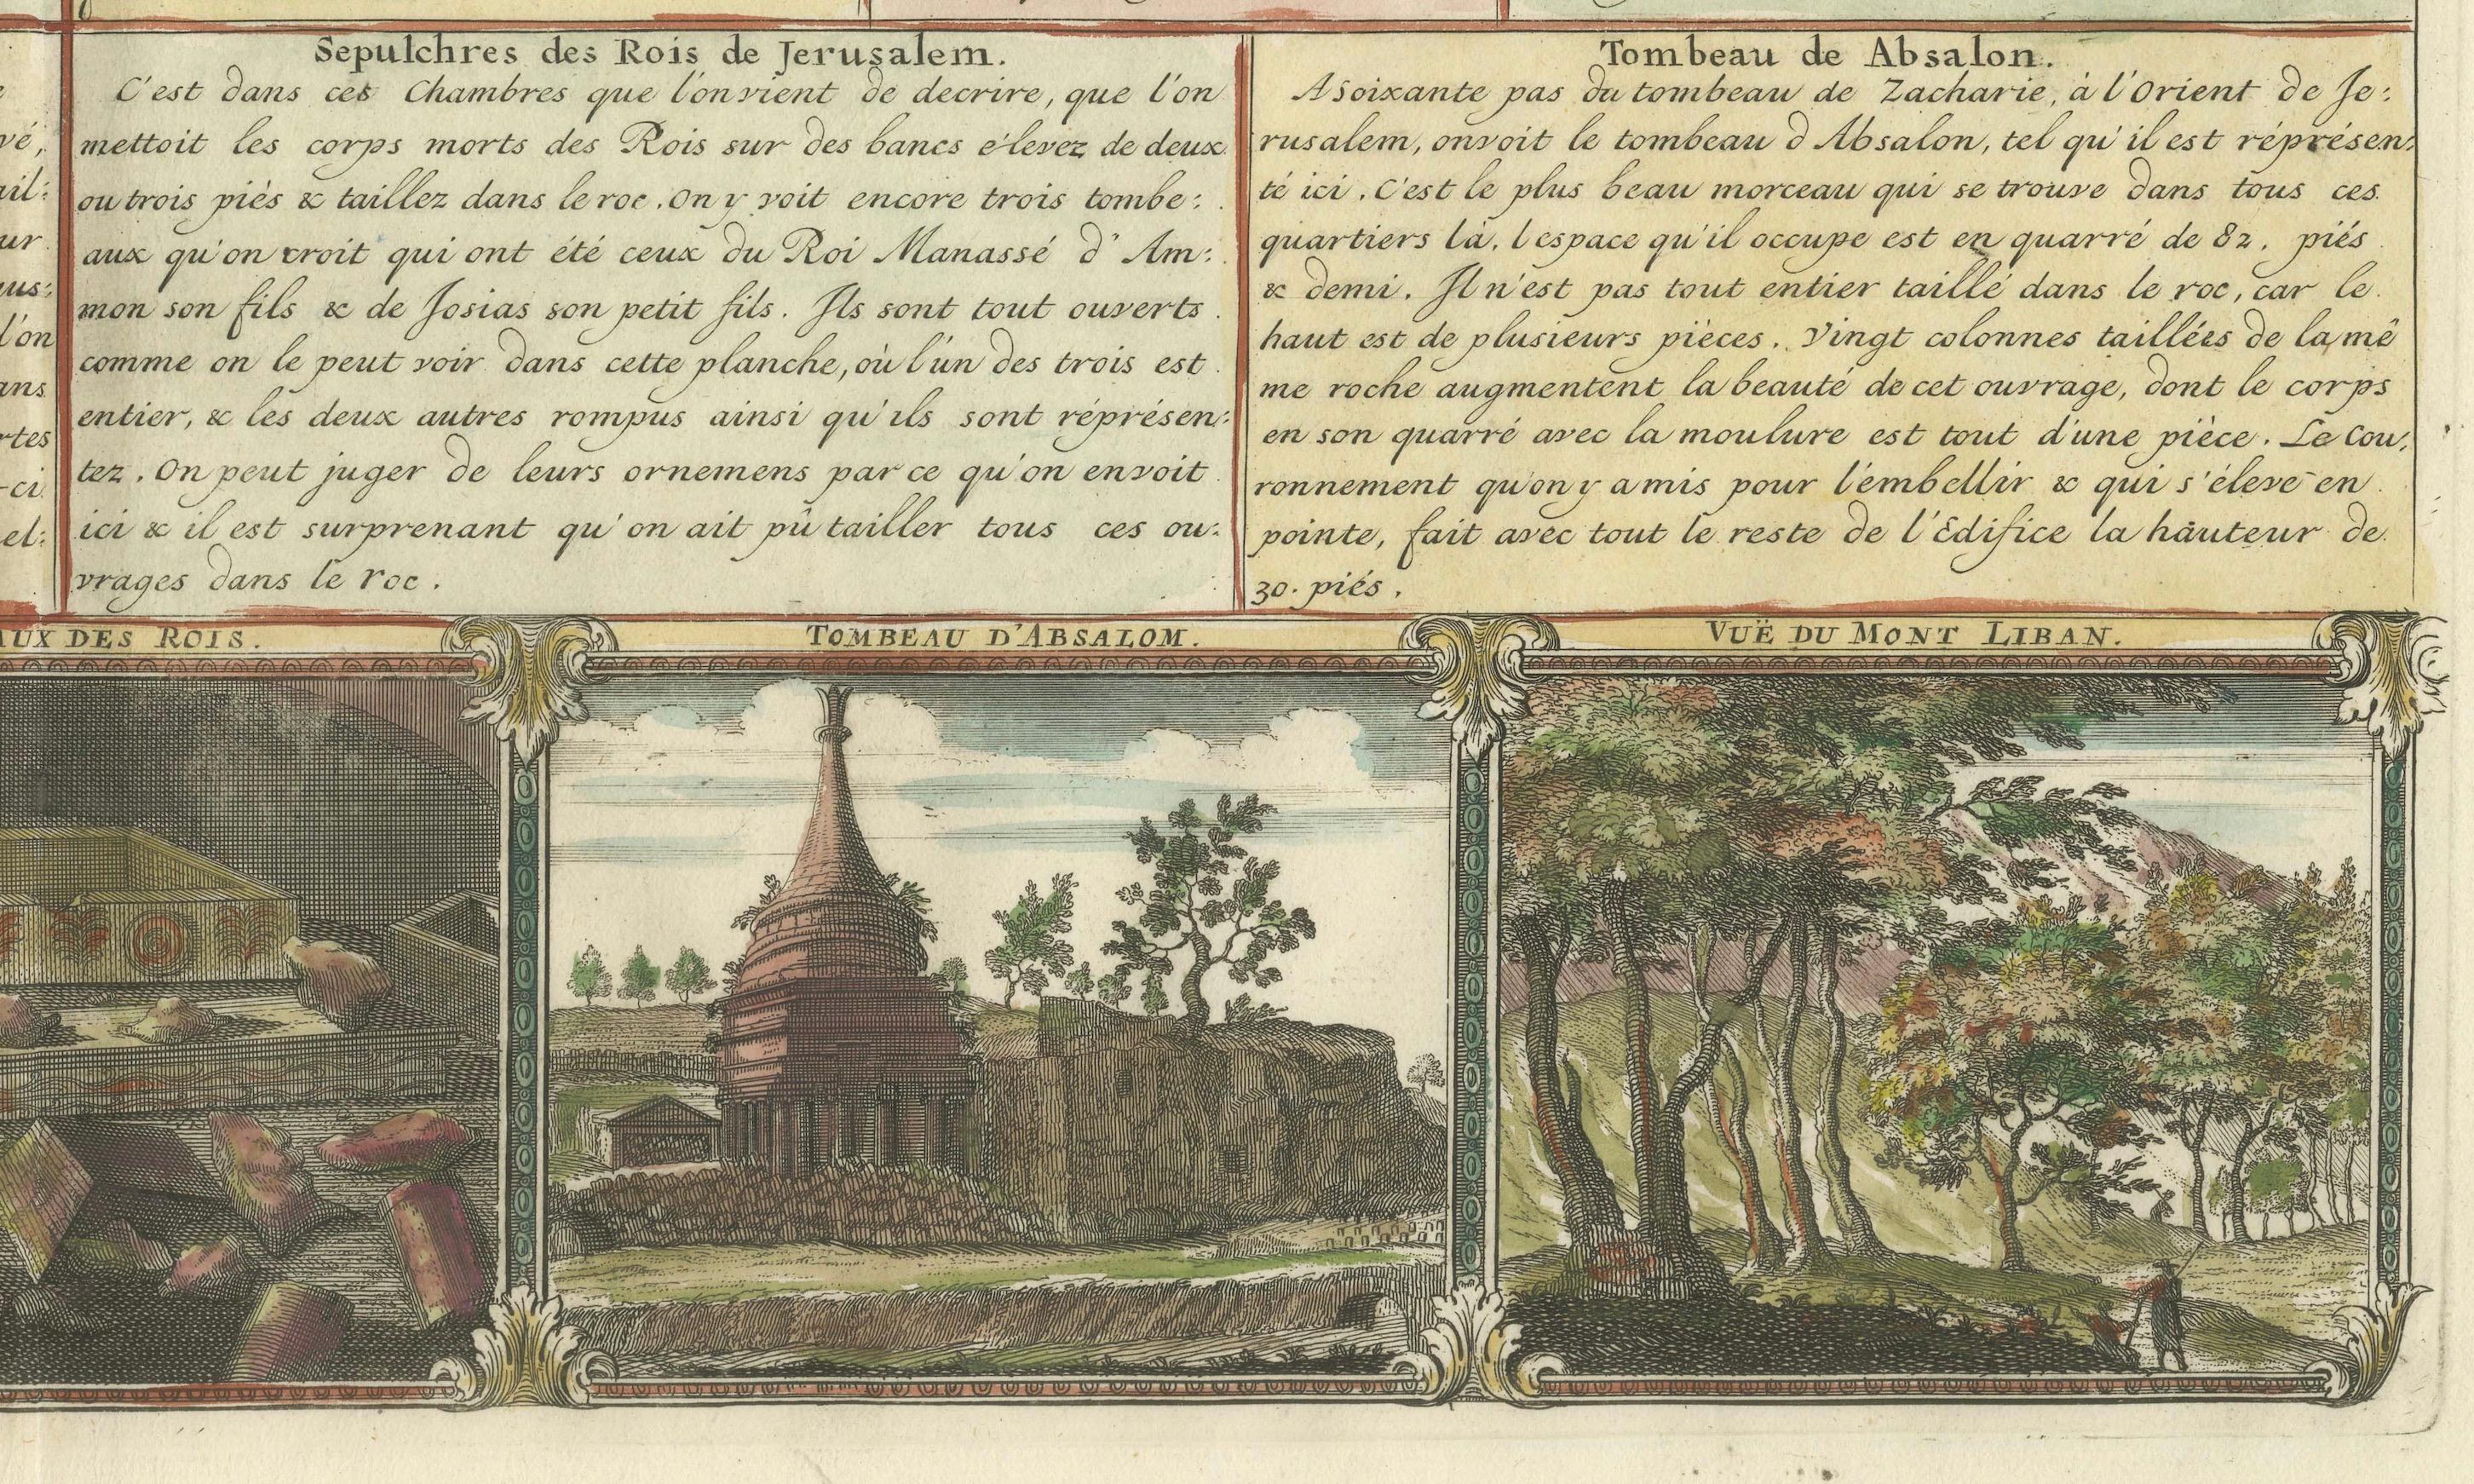 Sepulchres des Rois de Jerusalem.
C'est dans ces Chambres que l'on vient de decrire, que l'on
mettoit les corps morts des Rois sur des bancs élevez de deux
ou trois piés & taillez dans le roc. On y voit encore trois tombe:
aux qu'on croit qui ont été ceux du Roi Manassé d'Am:
mon son fils & de Josias son petit fils. Ils sont tout ouverts
comme on le peut voir dans cette planche, où l'un des trois est
entier, & les deux autres rompus ainsi qu'ils sont réprésen:
tez. On peut juger de leurs ornemens par ce qu'on en voit
ici & il est surprenant qu'on ait pû tailler tous ces ou:
vrages dans le roc.
Tombeau de Absalon.
A soixante pas du tombeau de Zacharie, à l'Orient de Je:
rusalem, on voit le tombeau d Absalon, tel qu'il est réprésen:
té ici. C'est le plus beau morceau qui se trouve dans tous ces
quartiers là, l espace qu'il occupe est en quarré de 82. piés
& demi. Il n'est pas tout entier taillé dans le roc, car le
haut est de plusieurs pièces. Vingt colonnes taillées de la mê
me roche augmentent la beauté de cet ouvrage, dont le corps
en son quarré avec la moulure est tout d'une pièce. Le Cou:
ronnement qu'on y a mis pour l'émbellir & qui s'éleve en
pointe, fait avec tout le reste de l'Edifice la hauteur de
30. piés.
vé,
ail:
ur
us:
l'on
ans
rtes
-ci
el:
AUX DES ROIS.
TOMBEAU D'ABSALOM.
VUË DU MONT LIBAN.